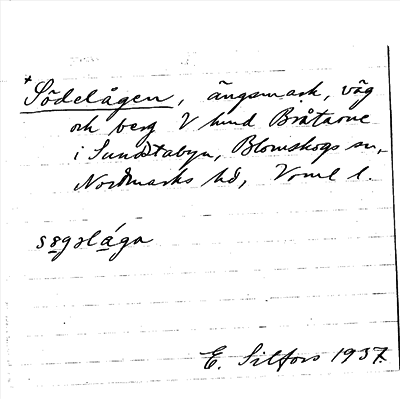 + Södelågen, ängsmark, väg
och berg V hmd Bråtarne
i Sundstabyn, Blomskogs sn,
Nordmarks hd, Vrml l.
E. Silfors 1937.